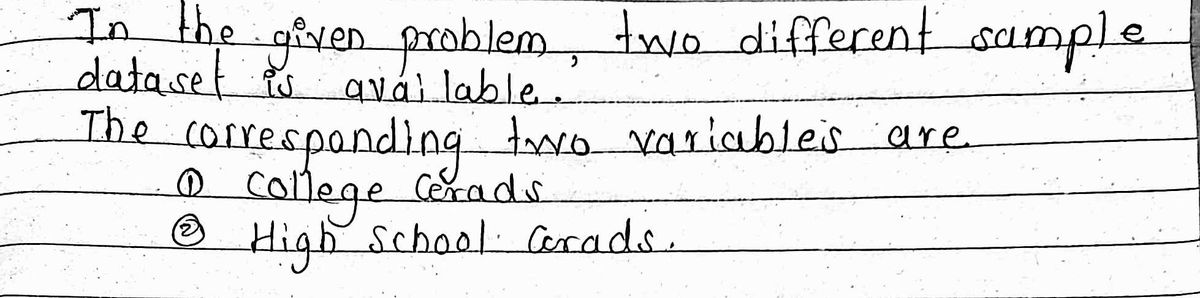 In the given problem, two different sample
dataset is available.
The corresponding two variables are
① College Grads
② High School Grads.